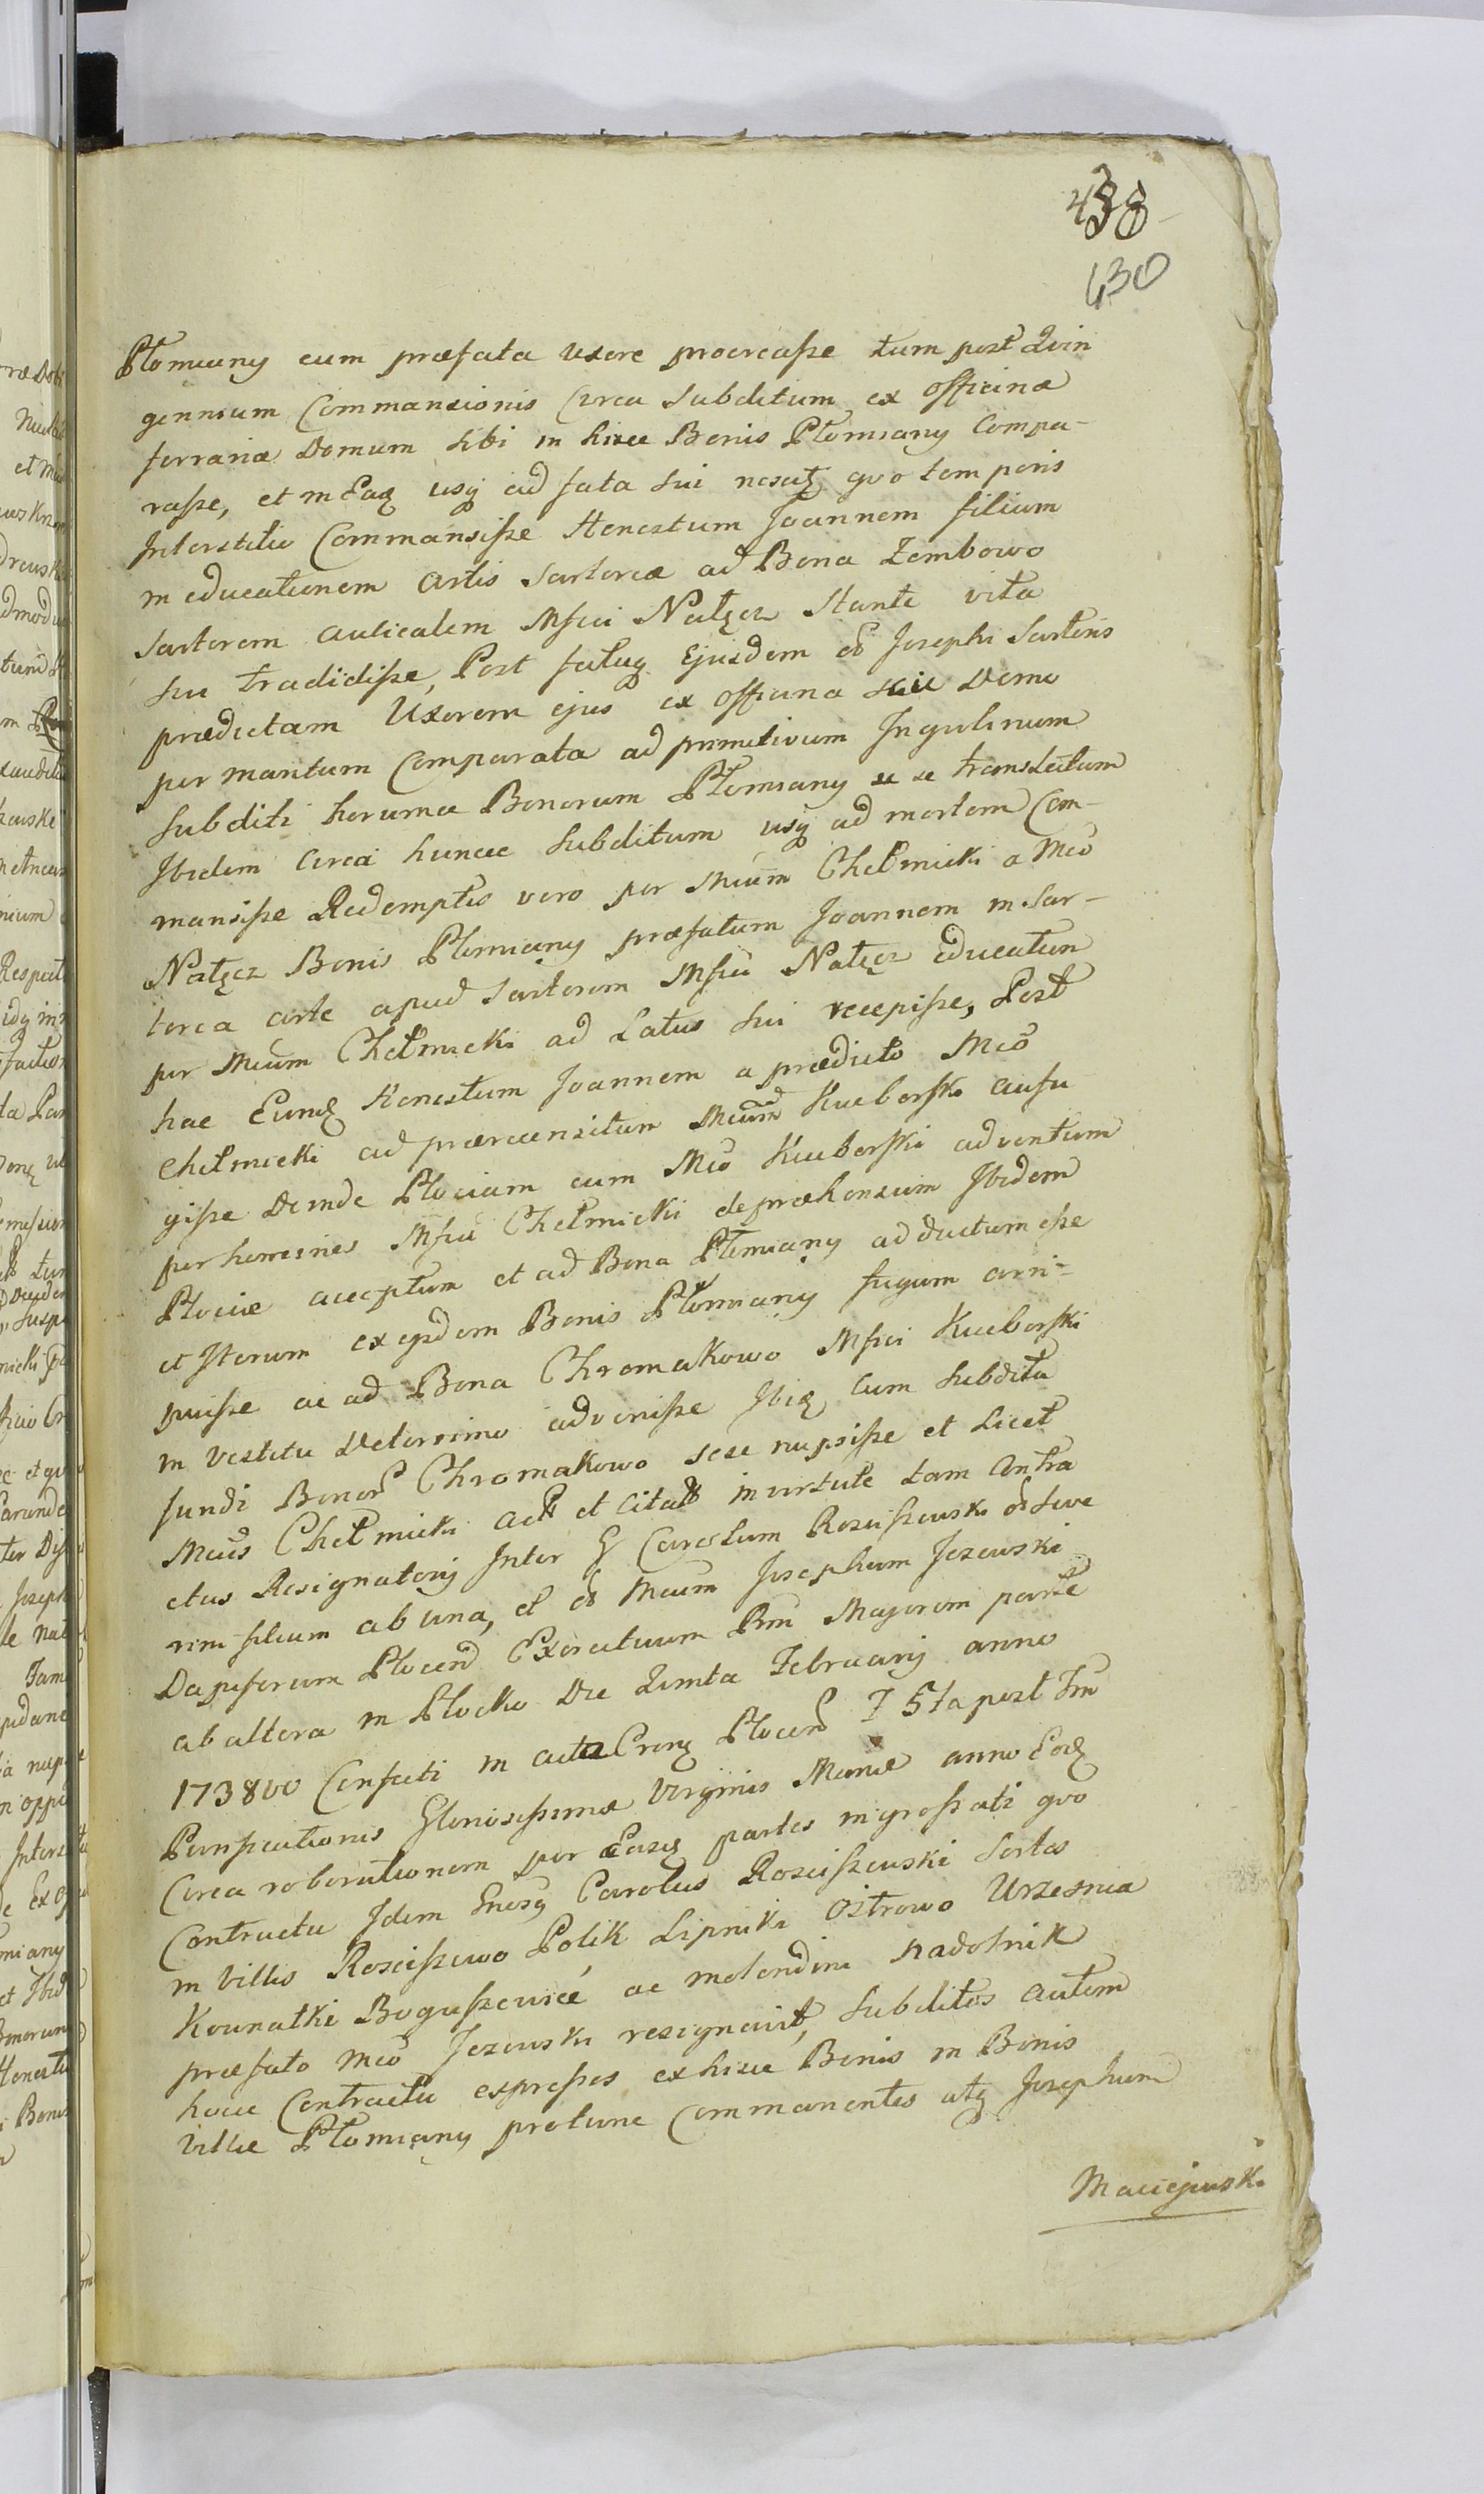 438
430
Płomiany cum præfata Uxore procreaße tum post Qvin
gennium Commansionis Circa Subditum ex officina
ferraria Domum sibi in hisce Bonis Płomiany Compa-
raße, et in Eaq usq ad fata sui nesatq qvo temporis
Interstitio Commansiße Honestum Joannem filium
in educationem Artis Sartoreæ ad Bona Zembowo
Sartorem aulicalem Mfici Nałęcz Stante vita
sui tradidiße, Post fatuq Ejusdem olim Josephi Sartoris
prædictam Uxorem ejus ex officina sive Domo
per maritum Comparata ad primitivum Inqvilinum
Subditi horumce Bonorum Płomiany se se translatum
Ibidem Circa huncce Subditum usq ad mortem Com-
mansiße Redemptis vero per Mcum Chełmicki a Mco
Nałęcz Bonis Płomiany præfatum Joannem in Sar-
torea arte apud Sartorem Mfici Nałęcz educatum
per Mcum Chełmicki ad Latus sui recepiße, Post
hac Eundq Honestum Joannem a prædicto Mco
Chełmicki ad præreccensitum Mcum Kucborski aufu
giße Deinde Plociam cum Mco Kucborski adventum
per homines Mfici Chełmicki depræhensum Ibidem
Plociæ acceptum et ad Bona Płomiany adductum eße
et Iterum ex eisdem Bonis Płomiany fugam arri-
puiße ac ad Bona Chromakowo Mfici Kucborski
in vestitu Deterrimo adveniße Ibiq Cum Subdita
fundi Bonor Chromakowo sese nupsiße et Licet
Mcus Chełmicki act et citat in virtute tam Contra
ctus Resignatorij Inter G Carolum Rosciszewski olim Seve
rini filium ab una, et olim Mcum Josephum Jezewski
Dapiferum Plocen Exercituum Rm Majorem parte
ab altera in Płocko Die Qvinta Februarij anno
1738vo Confecti in acta Crenq Plocen F 5ta post Fm
Purificationis Gloriosißimæ Virginis Mariæ anno Eodq
Circa roborationem per Easq partes ingroßati qvo
Contractu Idem Gnosq Carolus Rosciszewski Sortes
in Villis Rosciszewo Polik Lipniki Ostrowo Urzesnia
Kownatki Boguszewice ac molendini Nadolnik
præfato Mco Jezewski resignavit, Subditos autem
hocce Contractu expreßos ex hisce Bonis in Bonis
Villæ Płomiany protunc Commanentes utq Josephum
Maciejewski